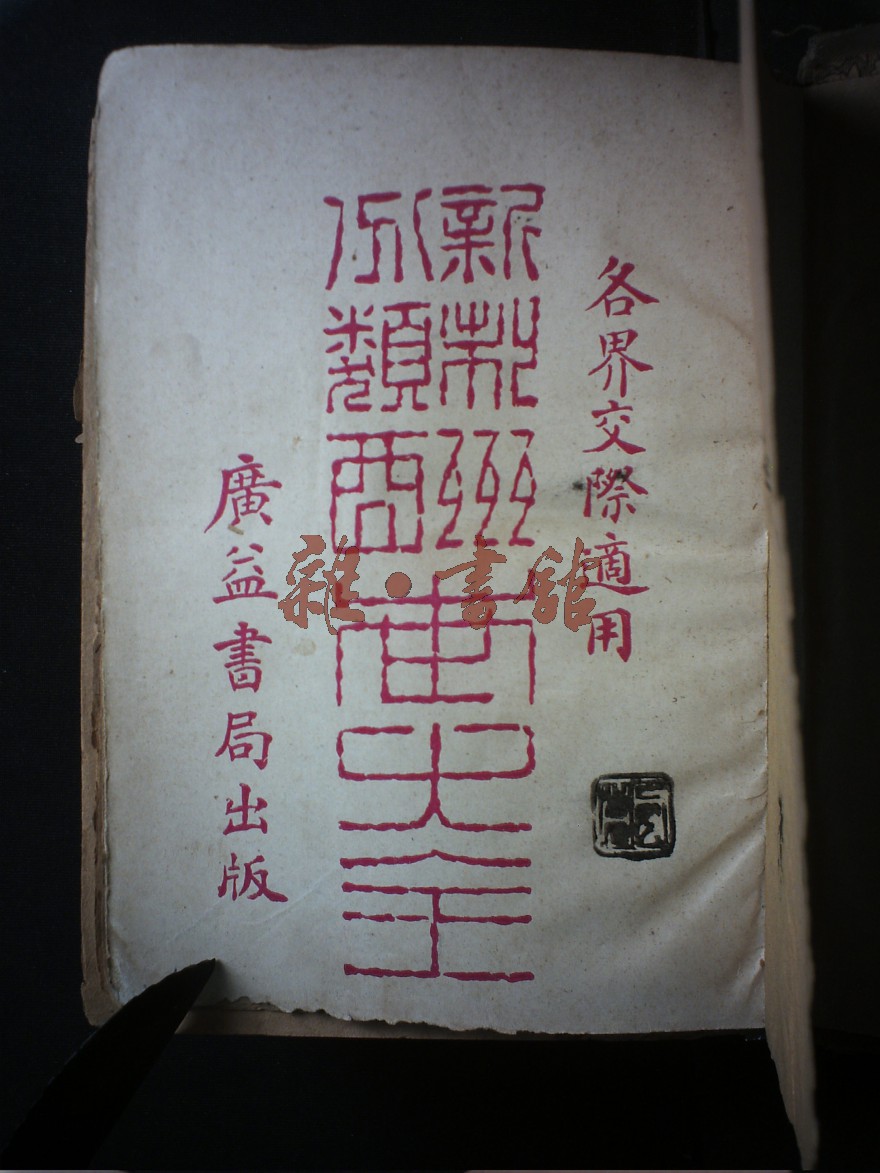 各界交際適用
新制
分類
酬世大全
廣益書局出版
雜·書館